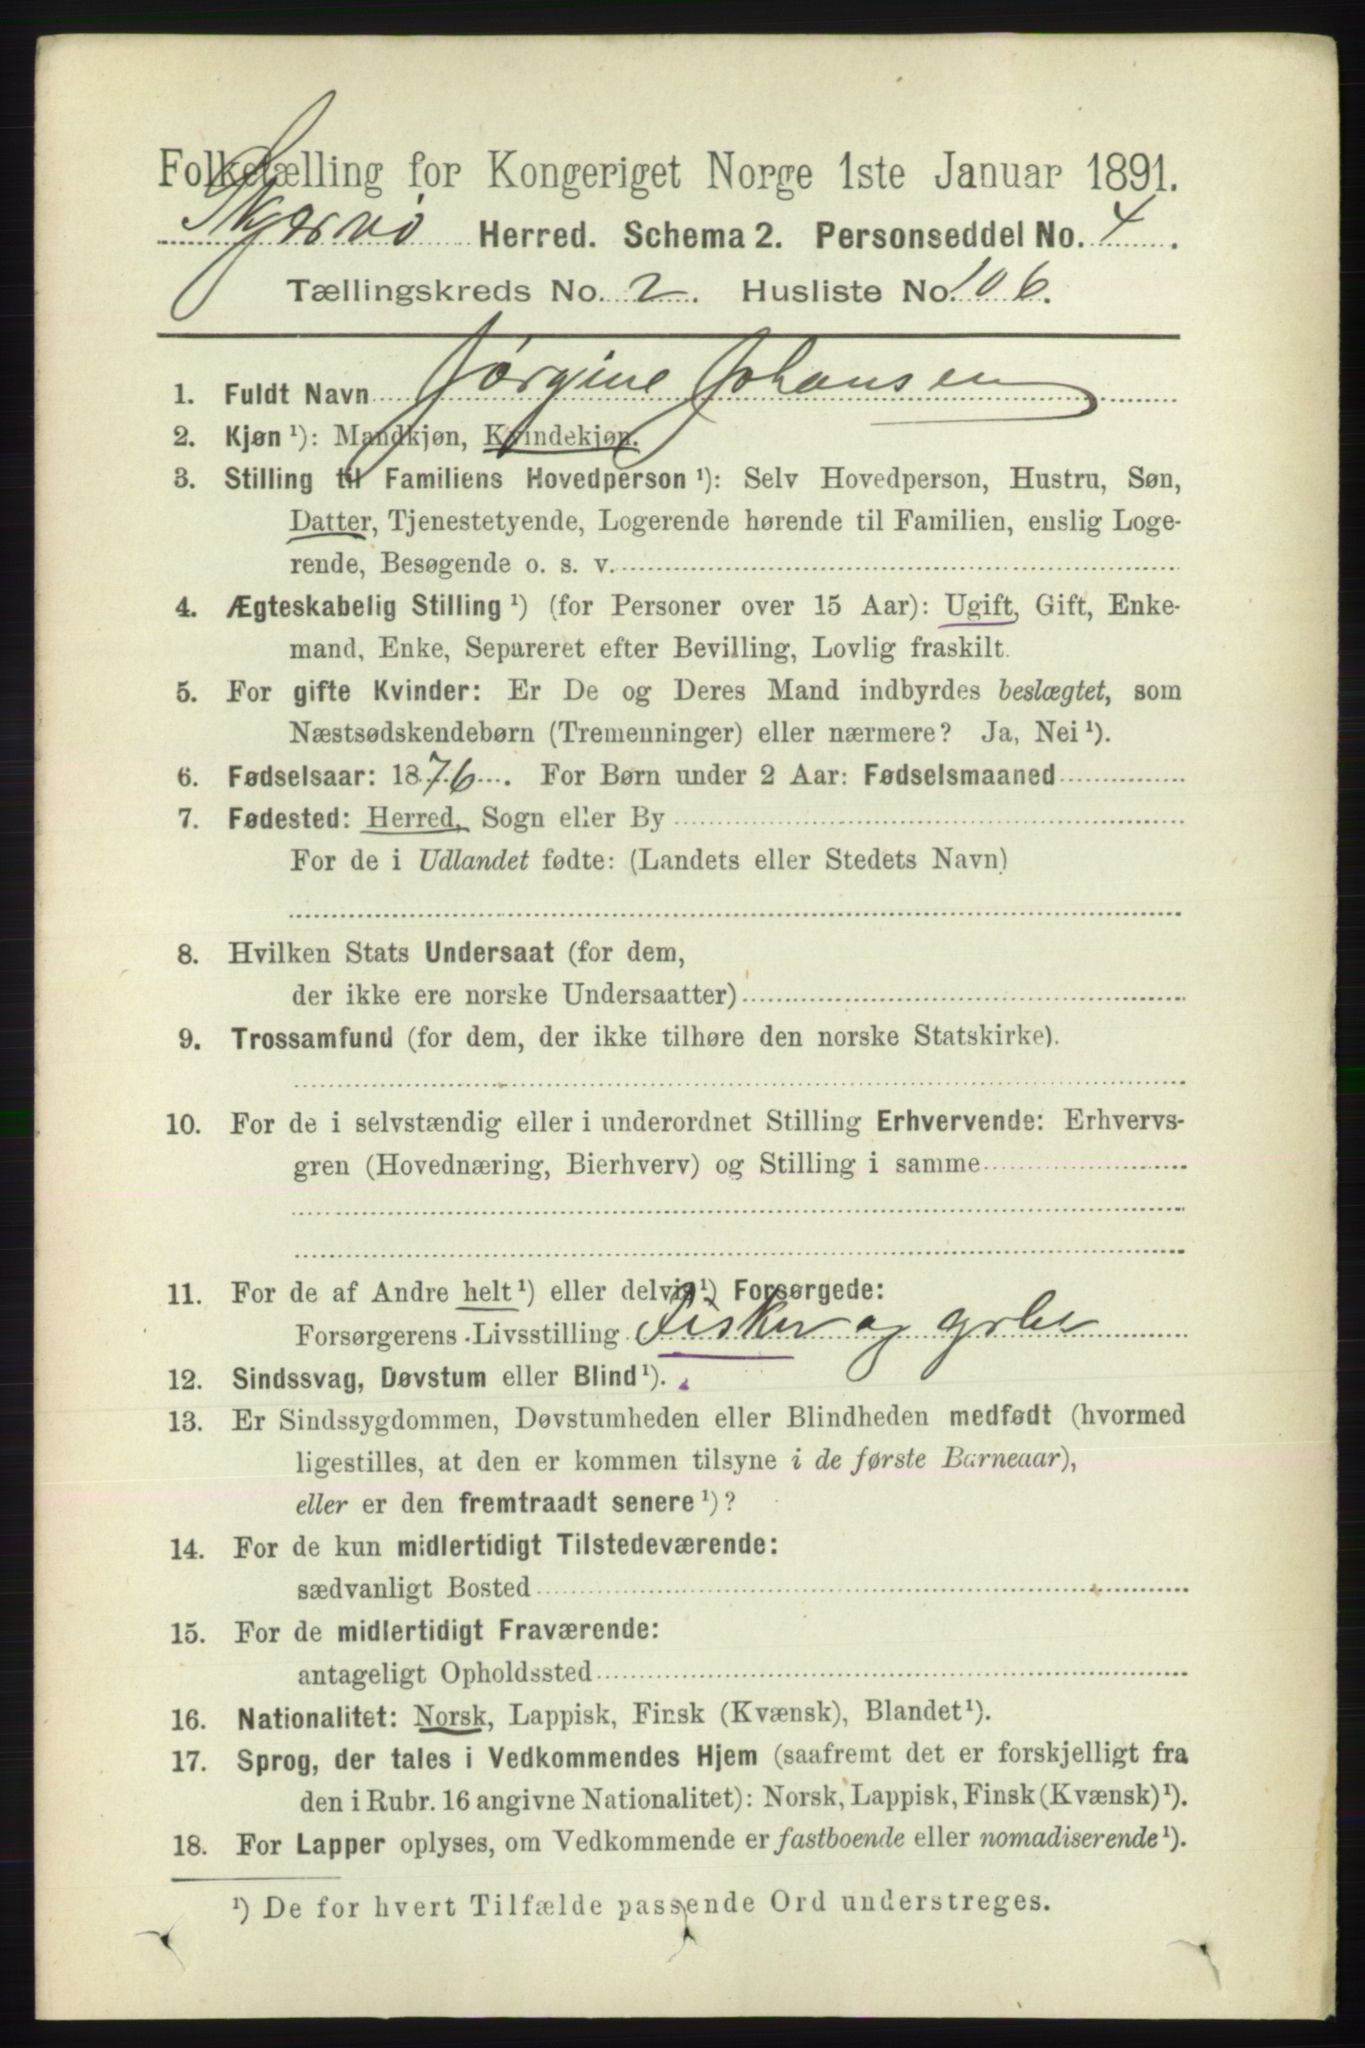 Folketælling for Kongeriget Norge 1ste Januar 1891.
Skjærvø Herred. Schema 2. Personseddel No. 4.
Tællingskreds No. 2. Husliste No. 106.
1. Fuldt Navn Jørgine Johansen
2. Kjøn ¹): Mandkjøn, Kvindekjøn.
3. Stilling til Familiens Hovedperson ¹): Selv Hovedperson, Hustru, Søn,
Datter, Tjenestetyende, Logerende hørende til Familien, enslig Loge-
rende, Besøgende o. s. v.
4. Ægteskabelig Stilling ¹) (for Personer over 15 Aar): Ugift, Gift, Enke-
mand, Enke, Separeret efter Bevilling, Lovlig fraskilt.
5. For gifte Kvinder: Er De og Deres Mand indbyrdes beslægtet, som
Næstsødskendebørn (Tremenninger) eller nærmere? Ja, Nei ¹).
6. Fødselsaar: 1876. For Børn under 2 Aar: Fødselsmaaned
7. Fødested: Herred, Sogn eller By
For de i Udlandet fødte: (Landets eller Stedets Navn)
8. Hvilken Stats Undersaat (for dem,
der ikke ere norske Undersaatter)
9. Trossamfund (for dem, der ikke tilhøre den norske Statskirke).
10. For de i selvstændig eller i underordnet Stilling Erhvervende: Erhvervs-
gren (Hovednæring, Bierhverv) og Stilling i samme
11. For de af Andre helt ¹) eller delvis ¹) Forsørgede:
Forsørgerens Livsstilling Fisker og grbr
12. Sindssvag, Døvstum eller Blind ¹).
13. Er Sindssygdommen, Døvstumheden eller Blindheden medfødt (hvormed
ligestilles, at den er kommen tilsyne i de første Barneaar),
eller er den fremtraadt senere ¹)?
14. For de kun midlertidigt Tilstedeværende:
sædvanligt Bosted
15. For de midlertidigt Fraværende:
antageligt Opholdssted
16. Nationalitet: Norsk, Lappisk, Finsk (Kvænsk), Blandet ¹).
17. Sprog, der tales i Vedkommendes Hjem (saafremt det er forskjelligt fra
den i Rubr. 16 angivne Nationalitet): Norsk, Lappisk, Finsk (Kvænsk) ¹).
18. For Lapper oplyses, om Vedkommende er fastboende eller nomadiserende ¹).
¹) De for hvert Tilfælde passende Ord understreges.